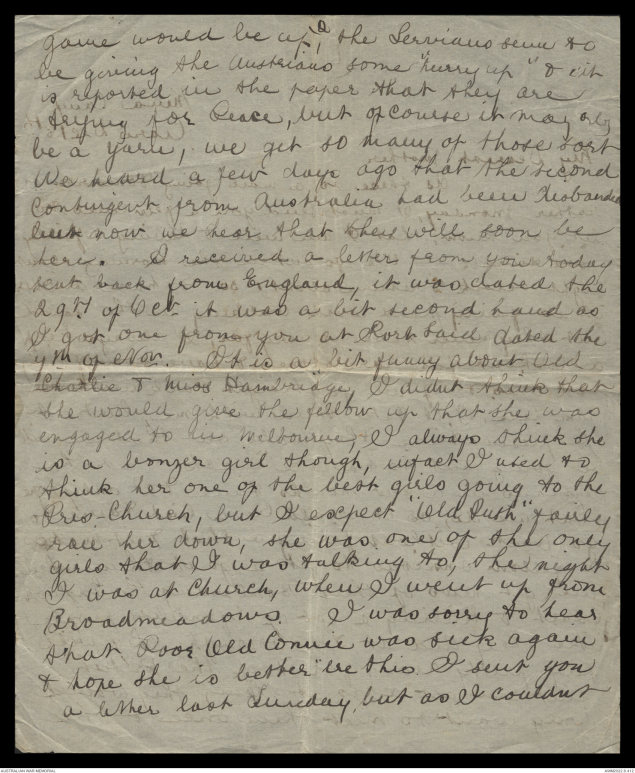 game would be up, the Servians seem to
be giving the Austrians some "hurry up" & it
is reported in the paper that they are
trying for Peace, but of course it may only
be a yarn, we get so many of those sort
We heard a few days ago that the second
Contingent from Australia had been Disbanded
but now we hear that they will soon be
here. I received a letter from you today
sent back from England, it was dated the
29th of Oct. it was a bit second hand as
I got one from you at Port Said dated the
9th of Nov. It is a bit funny about Old
Charlie & Miss Hambridge, I didnt think that
she would give the fellow up that she was
engaged to in Melbourne, I always think she
is a bonzer girl though, infact I used to
think her one of the best girls going to the
Pres-Church, but I expect "Old Push" fairly
race her down, she was one of the only
girls that I was talking to, the night
I was at Church, when I went up from
Broadmeadows. I was sorry to hear
that Poor Old Connie was sick again
& hope she is better be this. I sent you
a letter last Sunday, but as I couldnt
AUSTRALIAN WAR MEMORIAL